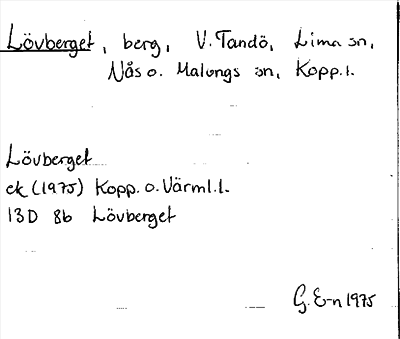 Lövberget, berg, V. Tandö, Lima sn,
Nås o. Malungs sn, Kopp.l.
Lövberget
ek (1975) Kopp. o. Värml.l.
13D 8b Lövberget
G. E-n 1975